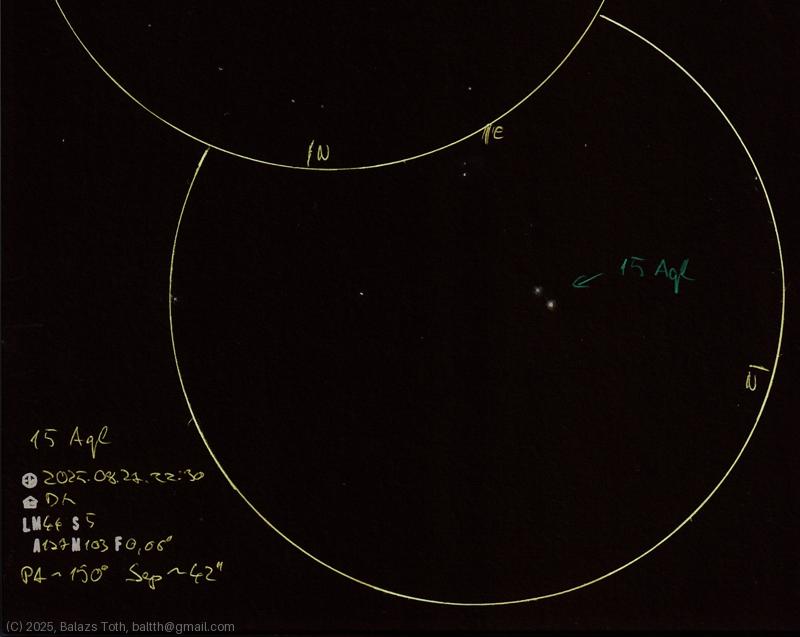 N
E
15 Aql
N
15 Aql
22:30
S 5
A127 M103 F 0,06°
PA ~ 150° Sep ~ 42"
(C) 2025, Balazs Toth, baltth@gmail.com